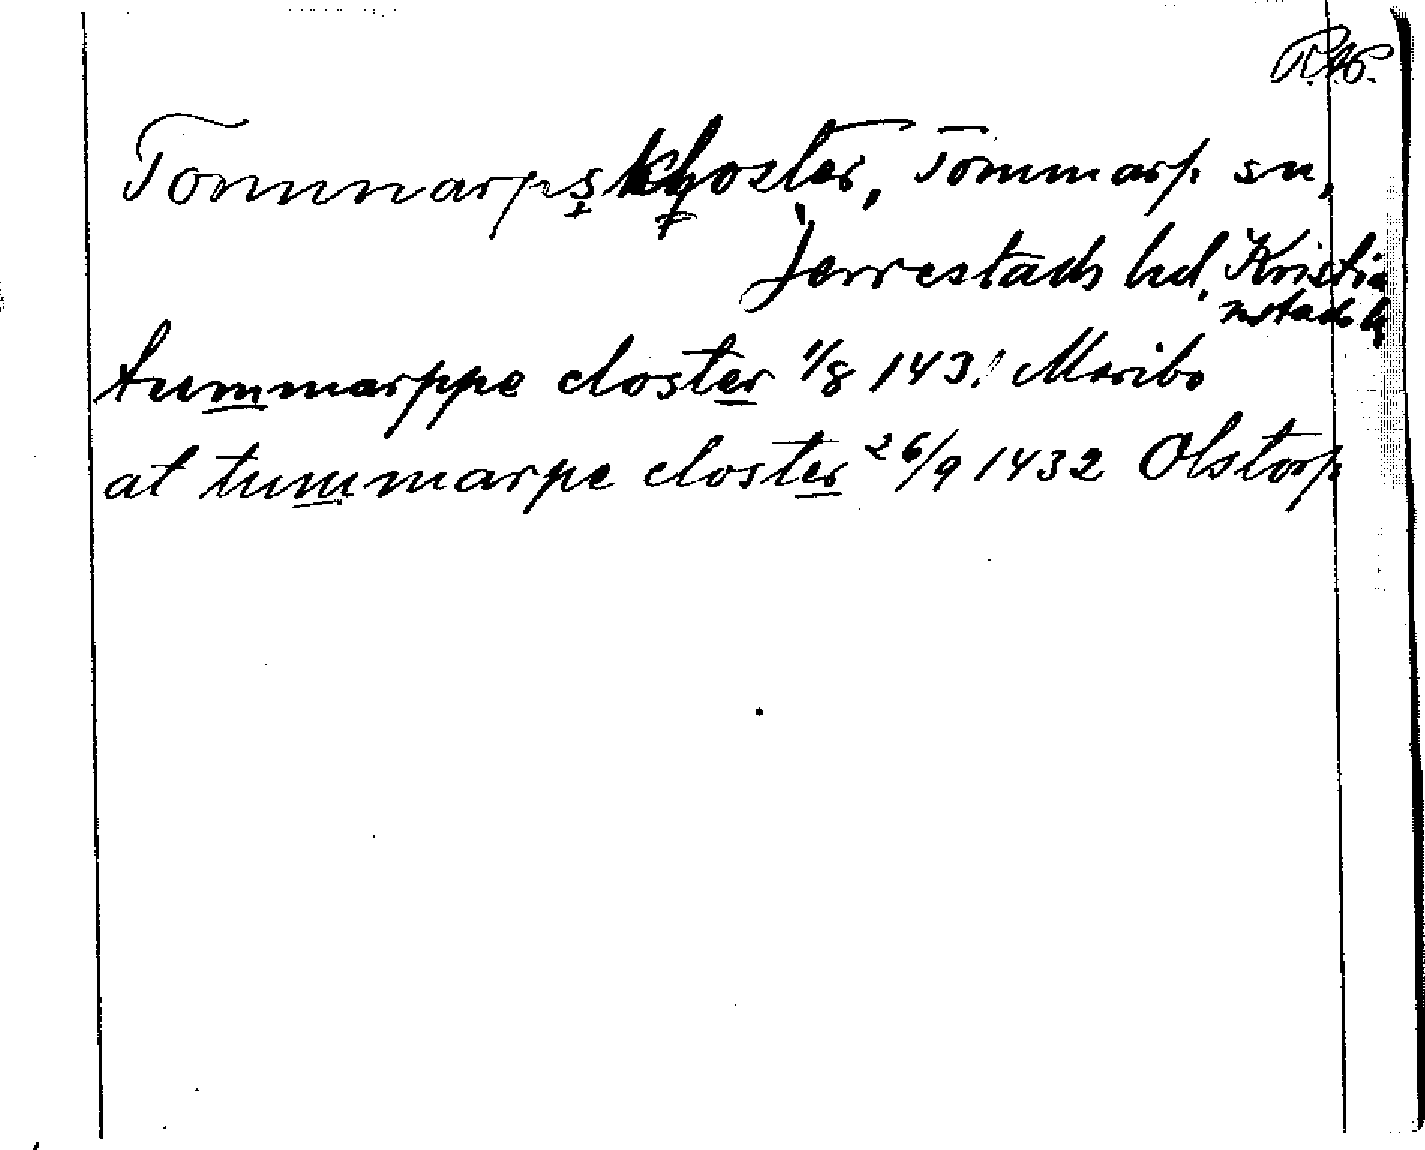 Tommarpskloster, Tommarp sn,
Jerrestads hd, Kristia
nstads l
tummarppe closter 1/8 1431 Maribo
at tummarpe closter 26/9 1432 Olstorp